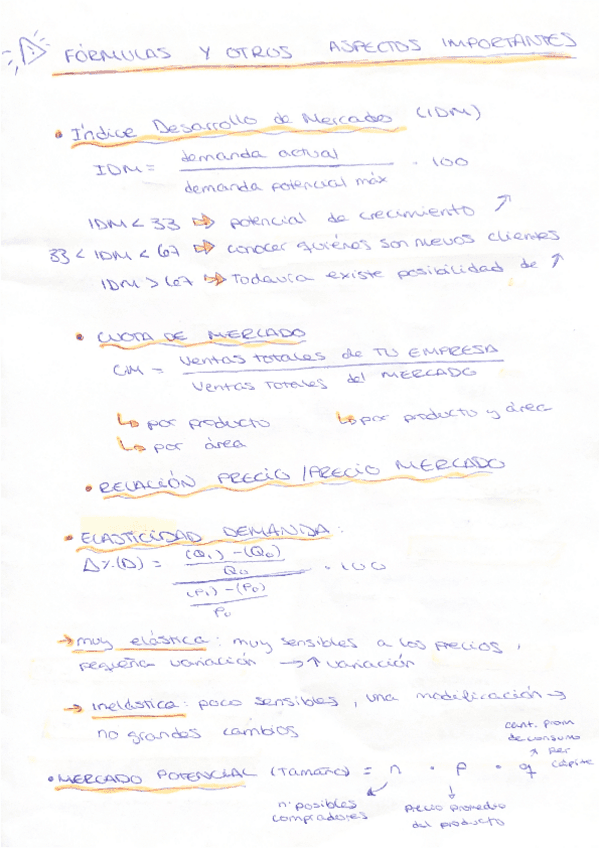 FÓRMULAS Y OTROS ASPECTOS IMPORTANTES
• Índice Desarrollo de Mercado (IDM)
IDM = demanda actual / demanda potencial máx · 100
IDM < 33 ⇒ potencial de crecimiento ↗
33 < IDM < 67 ⇒ conocer quiénes son nuevos clientes
IDM > 67 ⇒ Todavía existe posibilidad de ↗
• CUOTA DE MERCADO
CM = Ventas totales de TU EMPRESA / Ventas totales del MERCADO
↳ por producto ↳ por producto y área
↳ por área
• RELACIÓN PRECIO / PRECIO MERCADO
• ELASTICIDAD DEMANDA:
Δ%(D) = (Q₁) - (Q₀) / Q₀ / (P₁) - (P₀) / P₀ · 100
→ muy elástica: muy sensibles a los precios,
pequeña variación → ↑ variación
→ inelástica: poco sensibles, una modificación →
no grandes cambios
• MERCADO POTENCIAL (Tamaño) = n · p · q
n° posibles compradores
precio promedio del producto
cant. prom de consumo per cápita